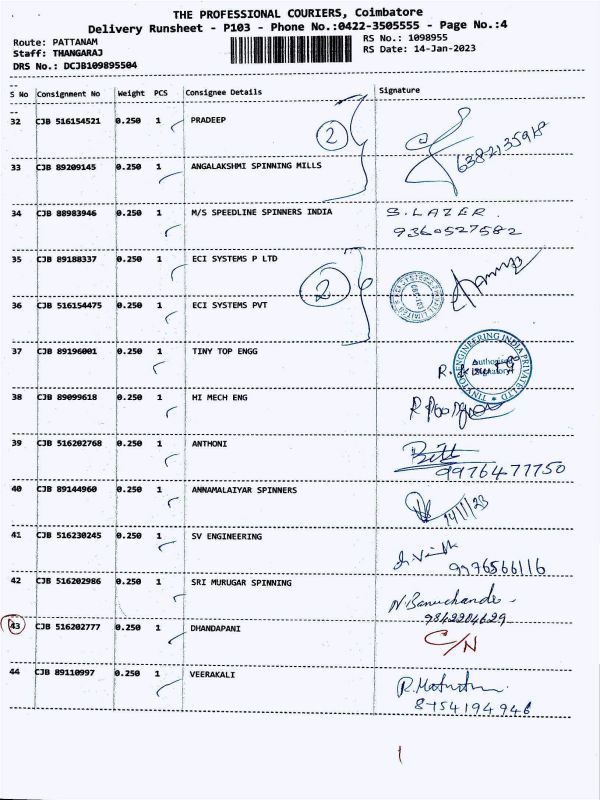 THE PROFESSIONAL COURIERS, Coimbatore
Delivery Runsheet - P103 - Phone No.:0422-3505555 - Page No.:4
Route: PATTANAM RS No.: 1098955
Staff: THANGARAJ RS Date: 14-Jan-2023
DRS No.: DCJB109895504
S No Consignment No Weight PCS Consignee Details Signature
32 CJB 516154521 0.250 1 PRADEEP
2
33 CJB 89209145 0.250 1 ANGALAKSHMI SPINNING MILLS
34 CJB 88983946 0.250 1 M/S SPEEDLINE SPINNERS INDIA S.LAZER.
9360527582
35 CJB 89188337 0.250 1 ECI SYSTEMS P LTD
2
36 CJB 516154475 0.250 1 ECI SYSTEMS PVT
37 CJB 89196001 0.250 1 TINY TOP ENGG
38 CJB 89099618 0.250 1 HI MECH ENG
39 CJB 516202768 0.250 1 ANTHONI
9976477750
40 CJB 89144960 0.250 1 ANNAMALAIYAR SPINNERS
14/1/23
41 CJB 516230245 0.250 1 SV ENGINEERING
9976566116
42 CJB 516202986 0.250 1 SRI MURUGAR SPINNING
N. Banuchande
9842204629
43 CJB 516202777 0.250 1 DHANDAPANI C/N
44 CJB 89110997 0.250 1 VEERAKALI
8754194946